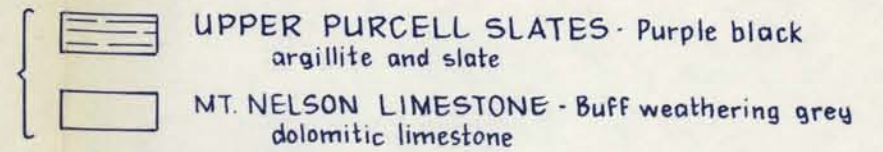 UPPER PURCELL SLATES - Purple black
argillite and slate
MT. NELSON LIMESTONE - Buff weathering grey
dolomitic limestone